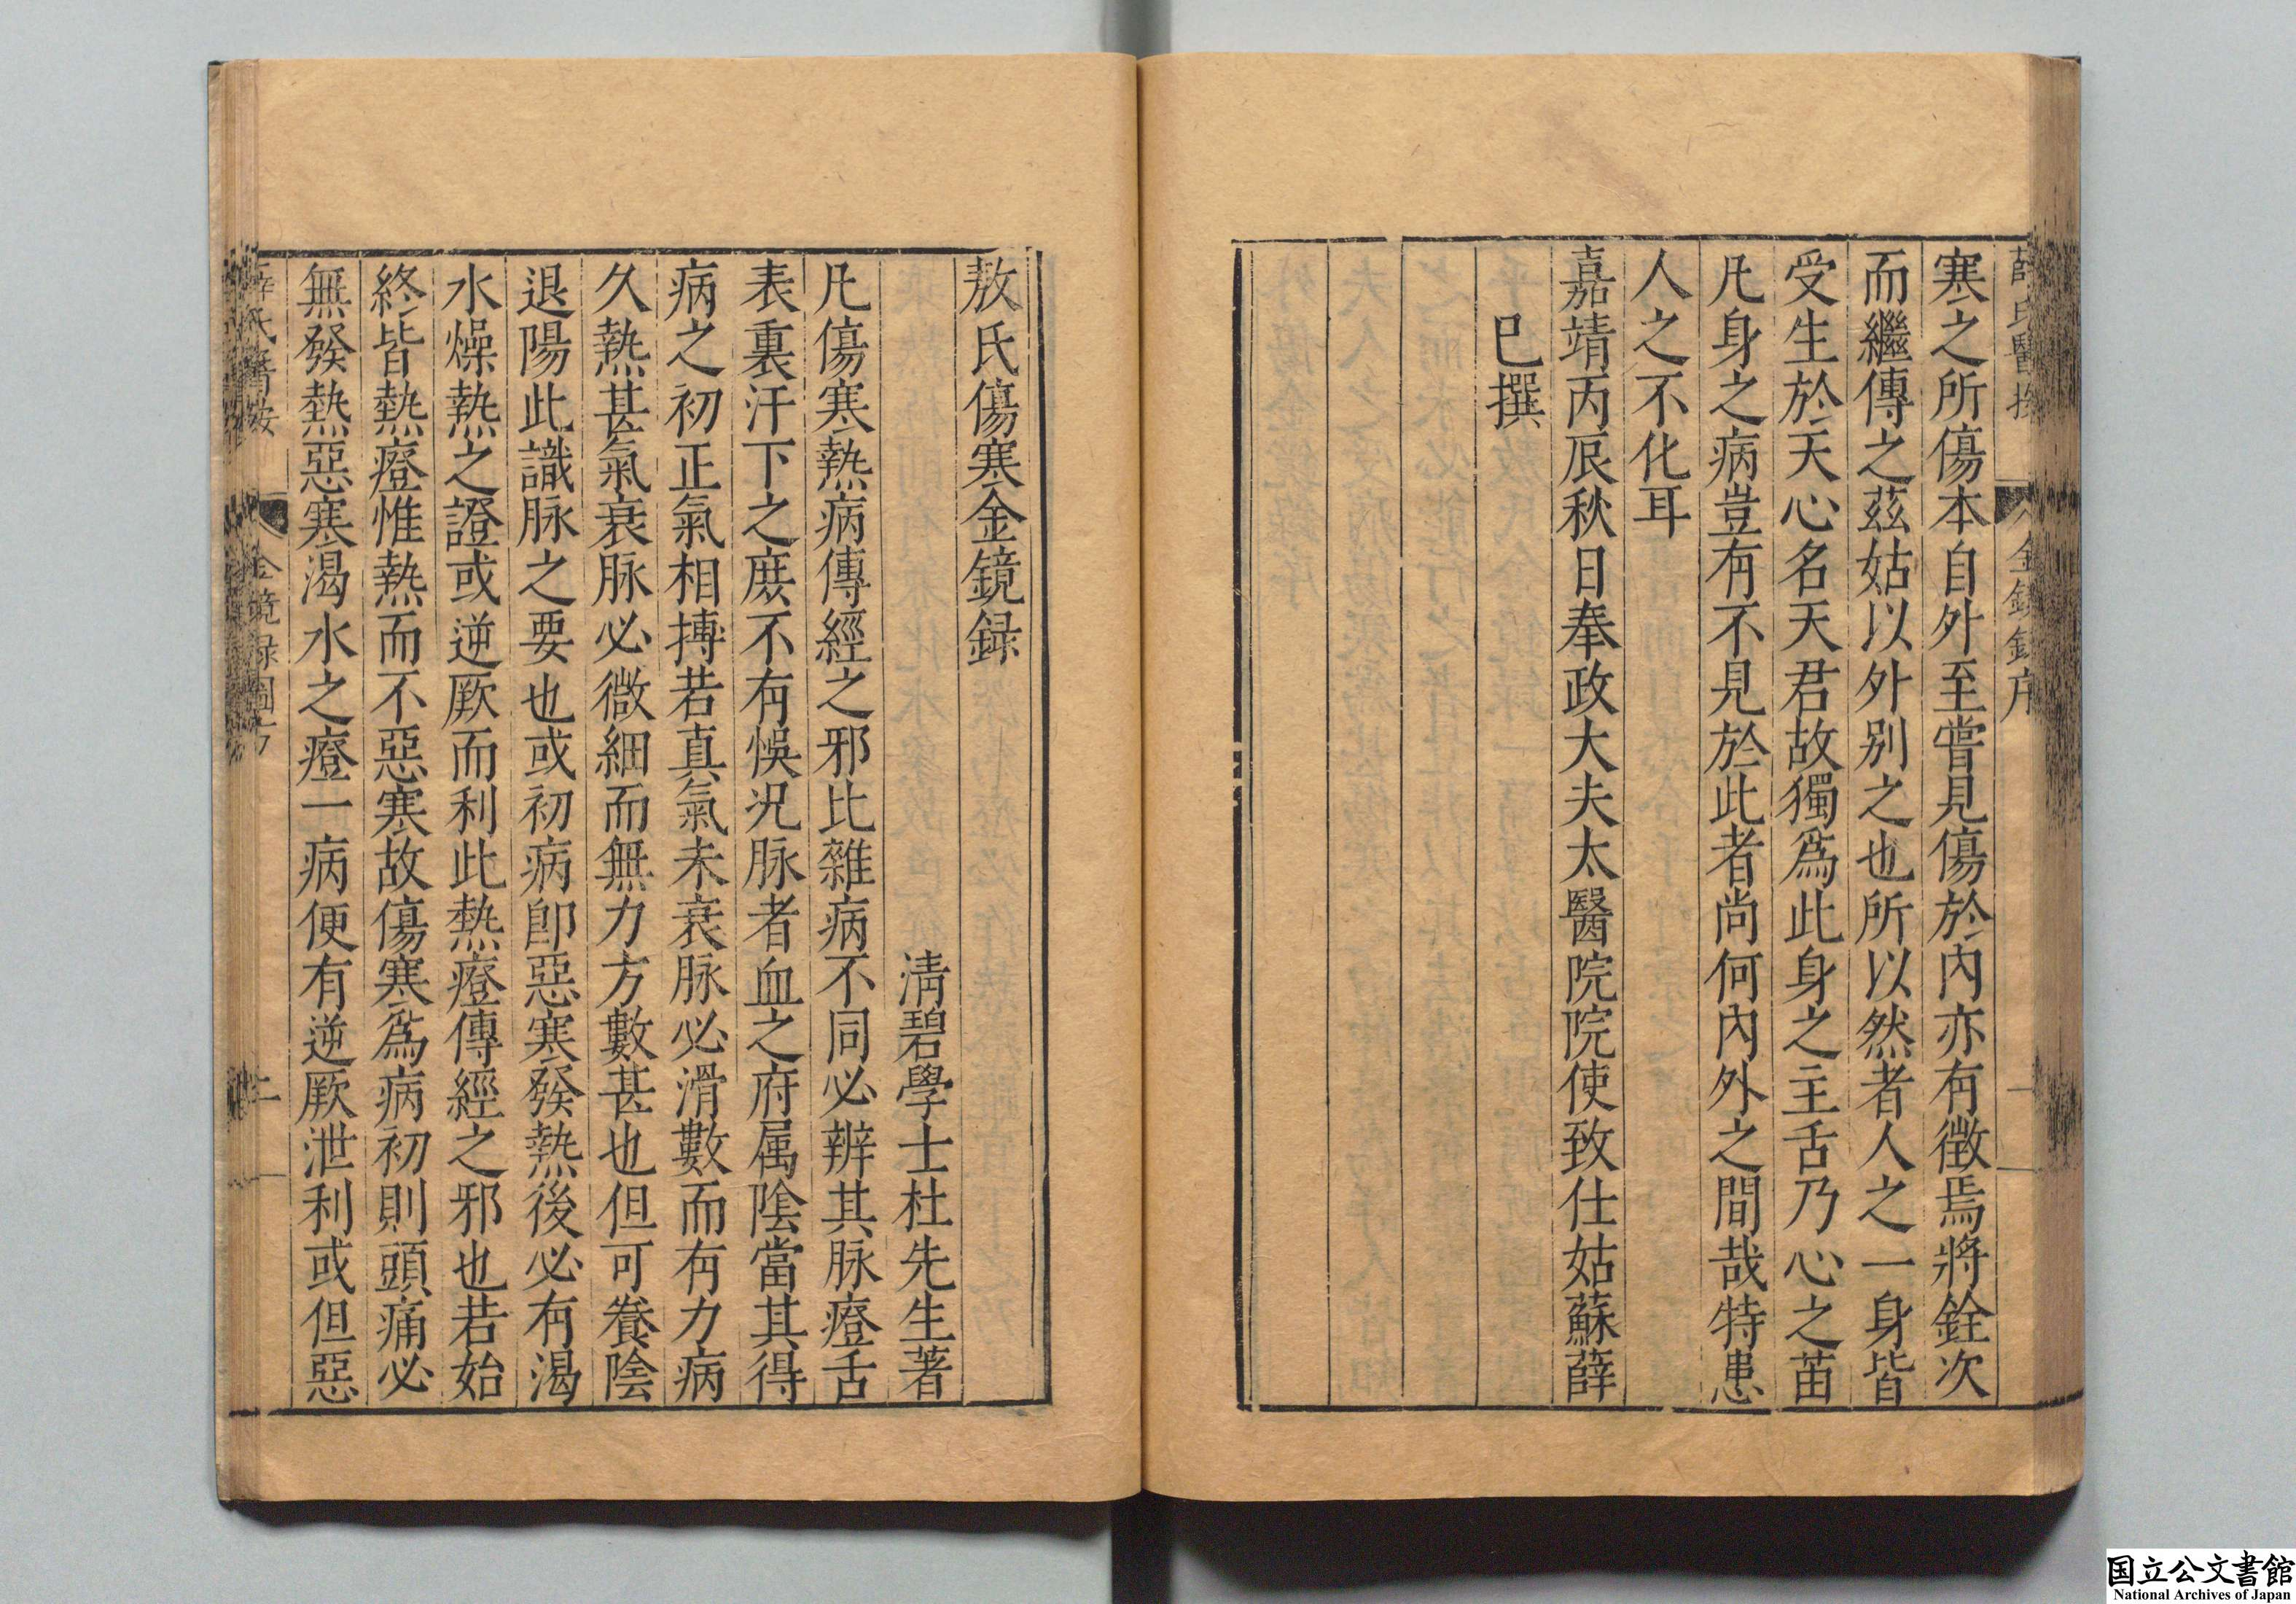 寒之所傷本自外至嘗見傷於內亦有徵焉將銓次
而繼傳之茲姑以外別之也所以然者人之一身皆
受生於天心名天君故獨爲此身之主舌乃心之苗
凡身之病豈有不見於此者尚何內外之間哉特患
人之不化耳
嘉靖丙辰秋日奉政大夫太醫院院使致仕姑蘇薛
已撰
敖氏傷寒金鏡録
清碧學士杜先生著
凡傷寒熱病傳經之邪比雜病不同必辨其脉證舌
表裏汗下之庶不有悞況脉者血之府属陰當其得
病之初正氣相搏若真氣未衰脉必滑數而有力病
久熱甚氣衰脉必微細而無力方數甚也但可養陰
退陽此識脉之要也或初病卽惡寒發熱後必有渴
水燥熱之證或逆厥而利此熱證傳經之邪也若始
終皆熱證惟熱而不惡寒故傷寒爲病初則頭痛必
無發熱惡寒渴水之證一病便有逆厥泄利或但惡
金鏡録圖方
二
国立公文書館
National Archives of Japan